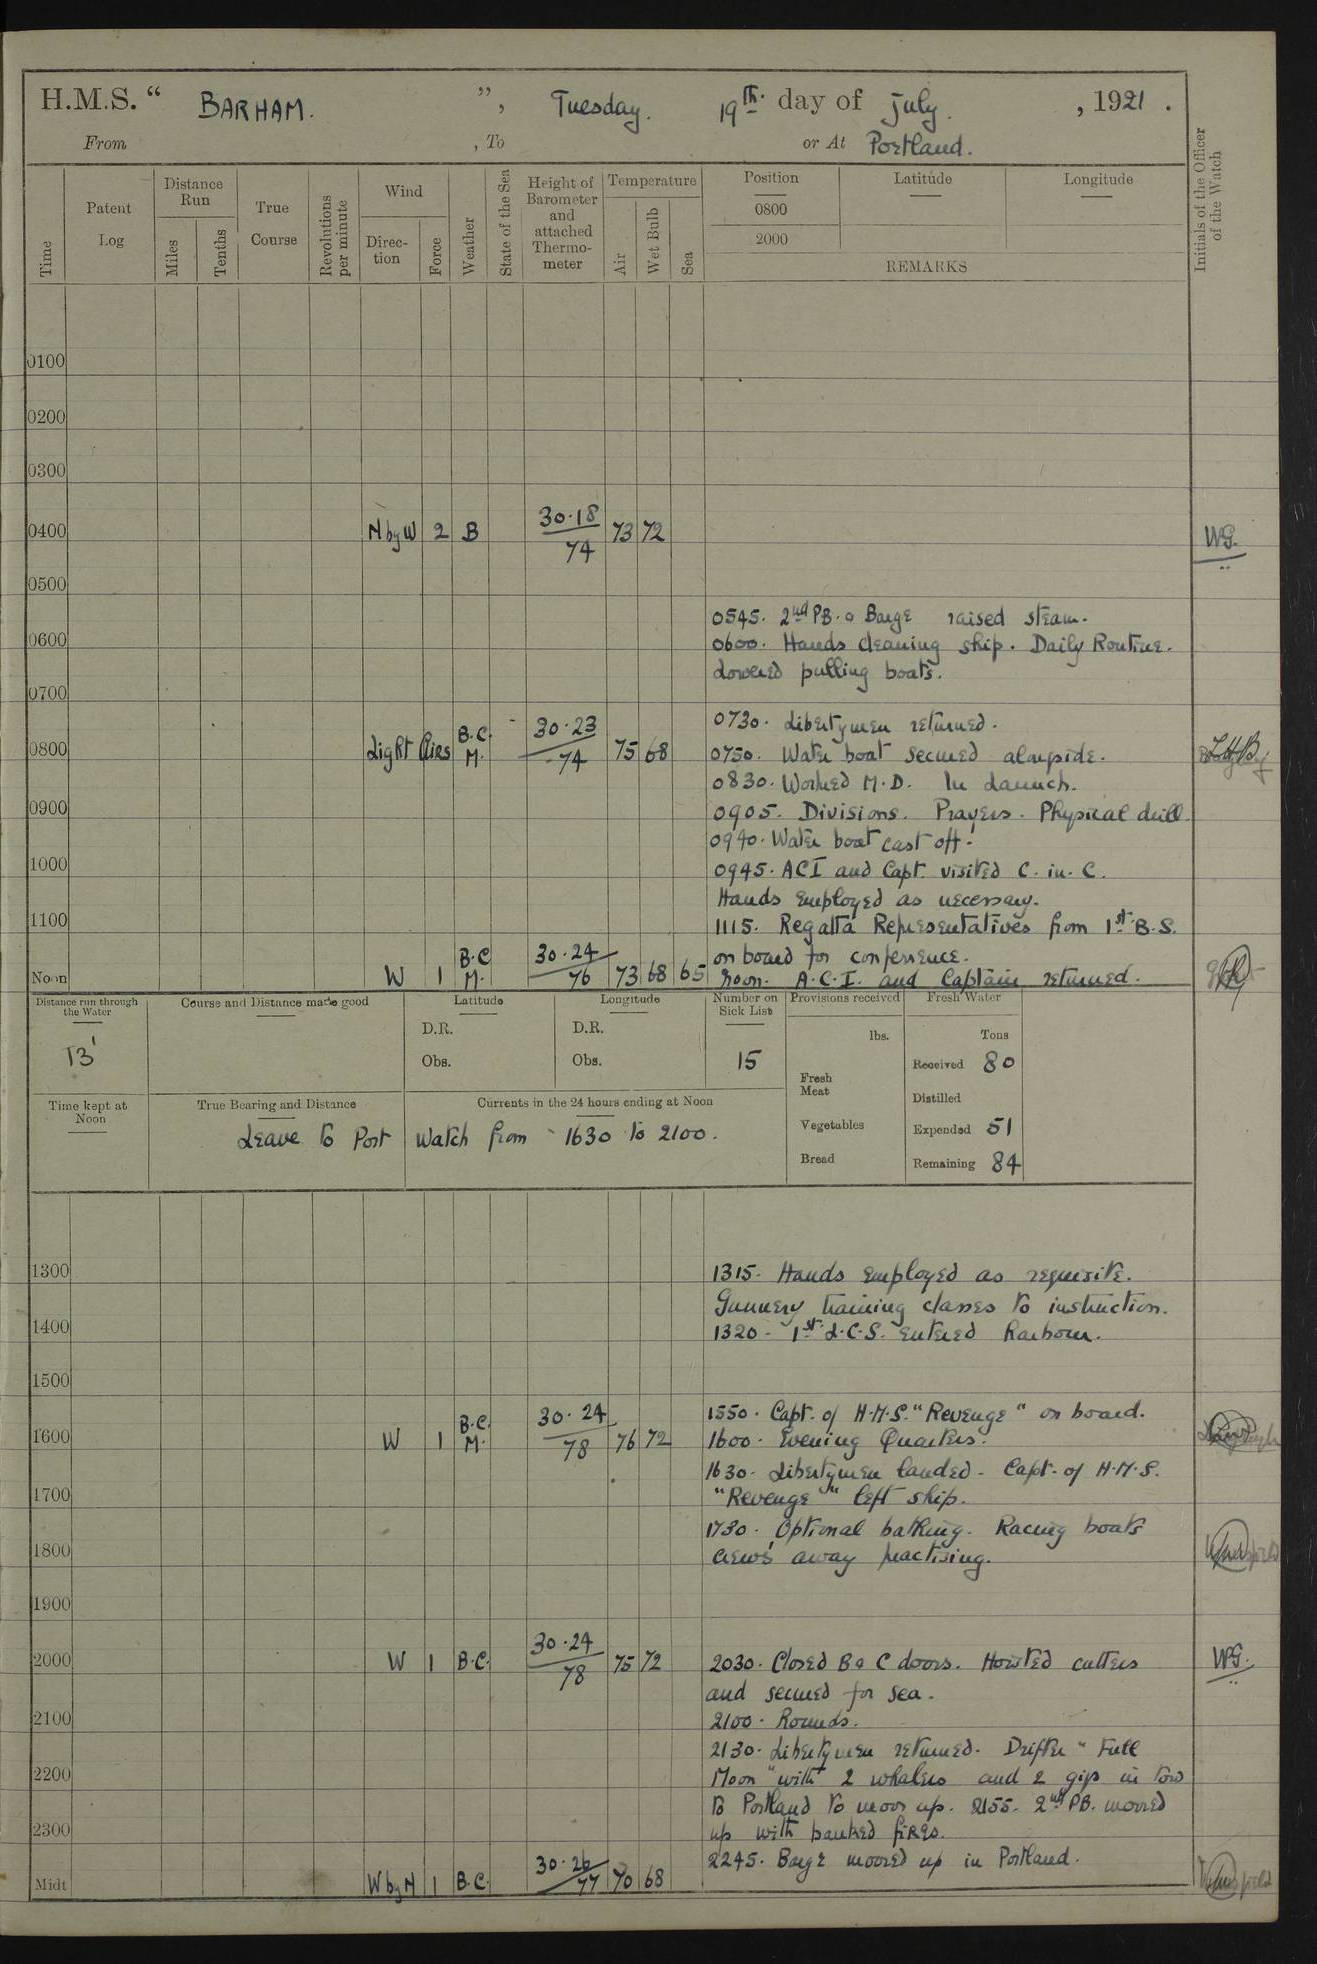 H.M.S. " BARHAM. ", Tuesday. 19th. day of July. , 1921 .
From , To or At Portland.
Time
Patent Log
Distance Run
Miles
Tenths
True Course
Revolutions per minute
Wind
Direc-tion
Force
Weather
State of the Sea
Height of Barometer and attached Thermo-meter
Temperature
Air
Wet Bulb
Sea
Position
0800
2000
Latitude
Longitude
REMARKS
Initials of the Officer of the Watch
0100
0200
0300
0400 N by W 2 B 30·18 / 74 73 72 WG.
0500
0545. 2nd PB. & Barge raised steam.
0600 0600. Hands cleaning ship. Daily Routine.
Lowered pulling boats.
0700
0730. Libertymen returned.
0800 Light Airs B.C. M. 30·23 / 74 75 68 0750. Water boat secured alongside.
0830. Worked M.D. In Launch.
0900 0905. Divisions. Prayers. Physical drill.
0940. Water boat cast off.
1000 0945. ACI and Capt. visited C. in. C.
Hands employed as necessary.
1100 1115. Regatta Representatives from 1st B.S.
on board for conference.
Noon W 1 B.C M. 30·24 / 76 73 68 65 Noon. A.C.I. and Captain returned.
Distance run through the Water
13'
Course and Distance made good
Latitude
D.R.
Obs.
Longitude
D.R.
Obs.
Number on Sick List
15
Provisions received
lbs.
Fresh Meat
Vegetables
Bread
Fresh Water
Tons
Received 80
Distilled
Expended 51
Remaining 84
Time kept at Noon
True Bearing and Distance
Currents in the 24 hours ending at Noon
Leave to Port Watch from 1630 to 2100.
1300 1315. Hands employed as requisite.
Gunnery training classes to instruction.
1400 1320. 1st L.C.S. entered harbour.
1500
1550. Capt. of H.M.S. "Revenge" on board.
1600 W 1 B.C. M. 30·24 / 78 76 72 1600. Evening Quarters.
1630. Libertymen landed. Capt. of H.M.S.
1700 "Revenge" left ship.
1730. Optional bathing. Racing boats
1800 crews away practising.
1900
2000 W 1 B.C. 30·24 / 78 75 72 2030. Closed B & C doors. Hoisted cutters WG.
and secured for sea.
2100 2100. Rounds.
2130. Libertymen returned. Drifter "Full
2200 Moon" with 2 whalers and 2 gigs in tow
to Portland to moor up. 2155. 2nd PB. moored
2300 up with banked fires.
2245. Barge moored up in Portland.
Midt W by N 1 B.C. 30·26 / 77 70 68